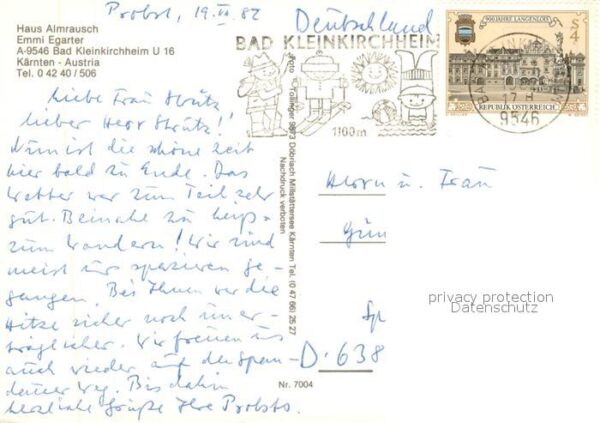 Probst, 19. VII. 82
Deutschland
Haus Almrausch
Emmi Egarter
A-9546 Bad Kleinkirchheim U 16
Kärnten - Austria
Tel. 0 42 40 / 506
BAD KLEINKIRCHHEIM
1100m
900 JAHRE LANGENLOIS
S 4
REPUBLIK ÖSTERREICH
9546
Liebe Frau
lieber Herr
Nun ist die schöne Zeit
hier bald zu Ende. Das
Wetter war zum Teil sehr
gut. Beinahe zu heiß
zum Wandern! Wir sind
meist nur spazieren ge-
gangen. Bei Ihnen war die
Hitze sicher noch uner-
träglicher. Wir freuen uns
auch wieder auf den
Weg. Bis dahin
herzliche Grüße Ihre Probsts.
Foto Tollinger 9873 Döbriach Millstättersee Kärnten Tel. (0 47 66) 25 27
Nachdruck verboten
Herrn u. Frau
Gün
Sp
D-638
privacy protection
Datenschutz
Nr. 7004